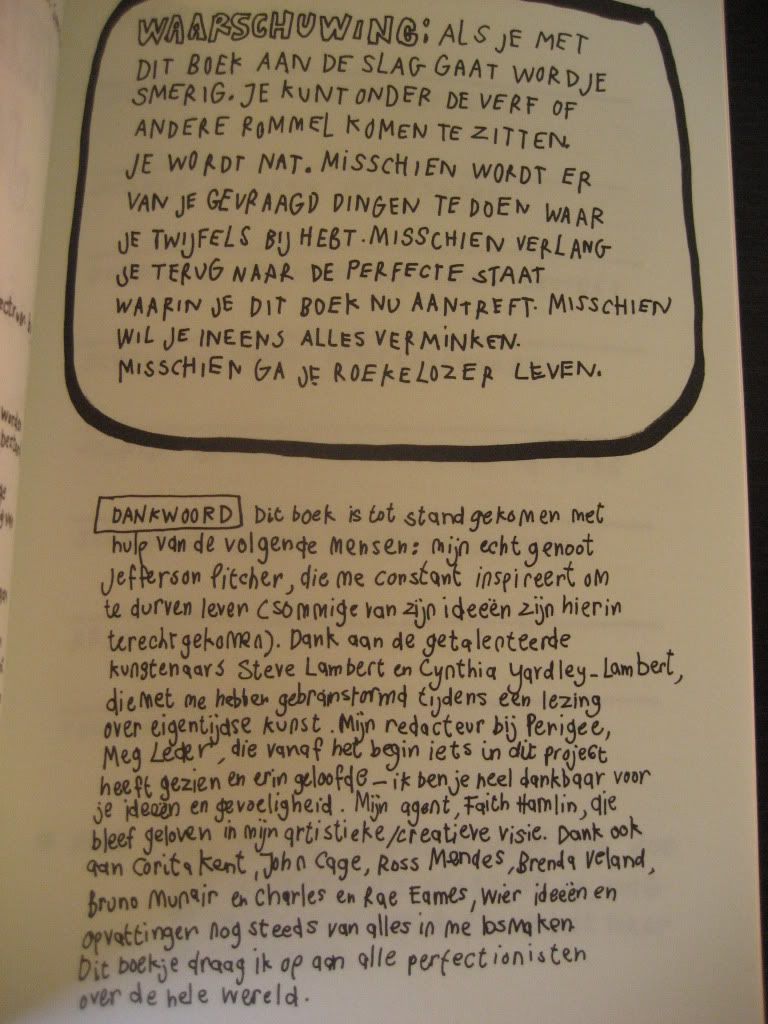 WAARSCHUWING: ALS JE MET
DIT BOEK AAN DE SLAG GAAT WORD JE
SMERIG. JE KUNT ONDER DE VERF OF
ANDERE ROMMEL KOMEN TE ZITTEN.
JE WORDT NAT. MISSCHIEN WORDT ER
VAN JE GEVRAAGD DINGEN TE DOEN WAAR
JE TWIJFELS BIJ HEBT. MISSCHIEN VERLANG
JE TERUG NAAR DE PERFECTE STAAT
WAARIN JE DIT BOEK NU AANTREFT. MISSCHIEN
WIL JE INEENS ALLES VERMINKEN.
MISSCHIEN GA JE ROEKELOZER LEVEN.
DANKWOORD Dit boek is tot stand gekomen met
hulp van de volgende mensen: mijn echtgenoot
Jefferson Pitcher, die me constant inspireert om
te durven leven (sommige van zijn ideeën zijn hierin
terecht gekomen). Dank aan de getalenteerde
kunstenaars Steve Lambert en Cynthia Yardley-Lambert,
die met me hebben gebrainstormd tijdens een lezing
over eigentijdse kunst. Mijn redacteur bij Perigee,
Meg Leder, die vanaf het begin iets in dit project
heeft gezien en erin geloofde – ik ben je heel dankbaar voor
je ideeën en gevoeligheid. Mijn agent, Faith Hamlin, die
bleef geloven in mijn artistieke/creatieve visie. Dank ook
aan Corita Kent, John Cage, Ross Mendes, Brenda Veland,
Bruno Munair en Charles en Rae Eames, wier ideeën en
opvattingen nog steeds van alles in me losmaken
Dit boekje draag ik op aan alle perfectionisten
over de hele wereld.